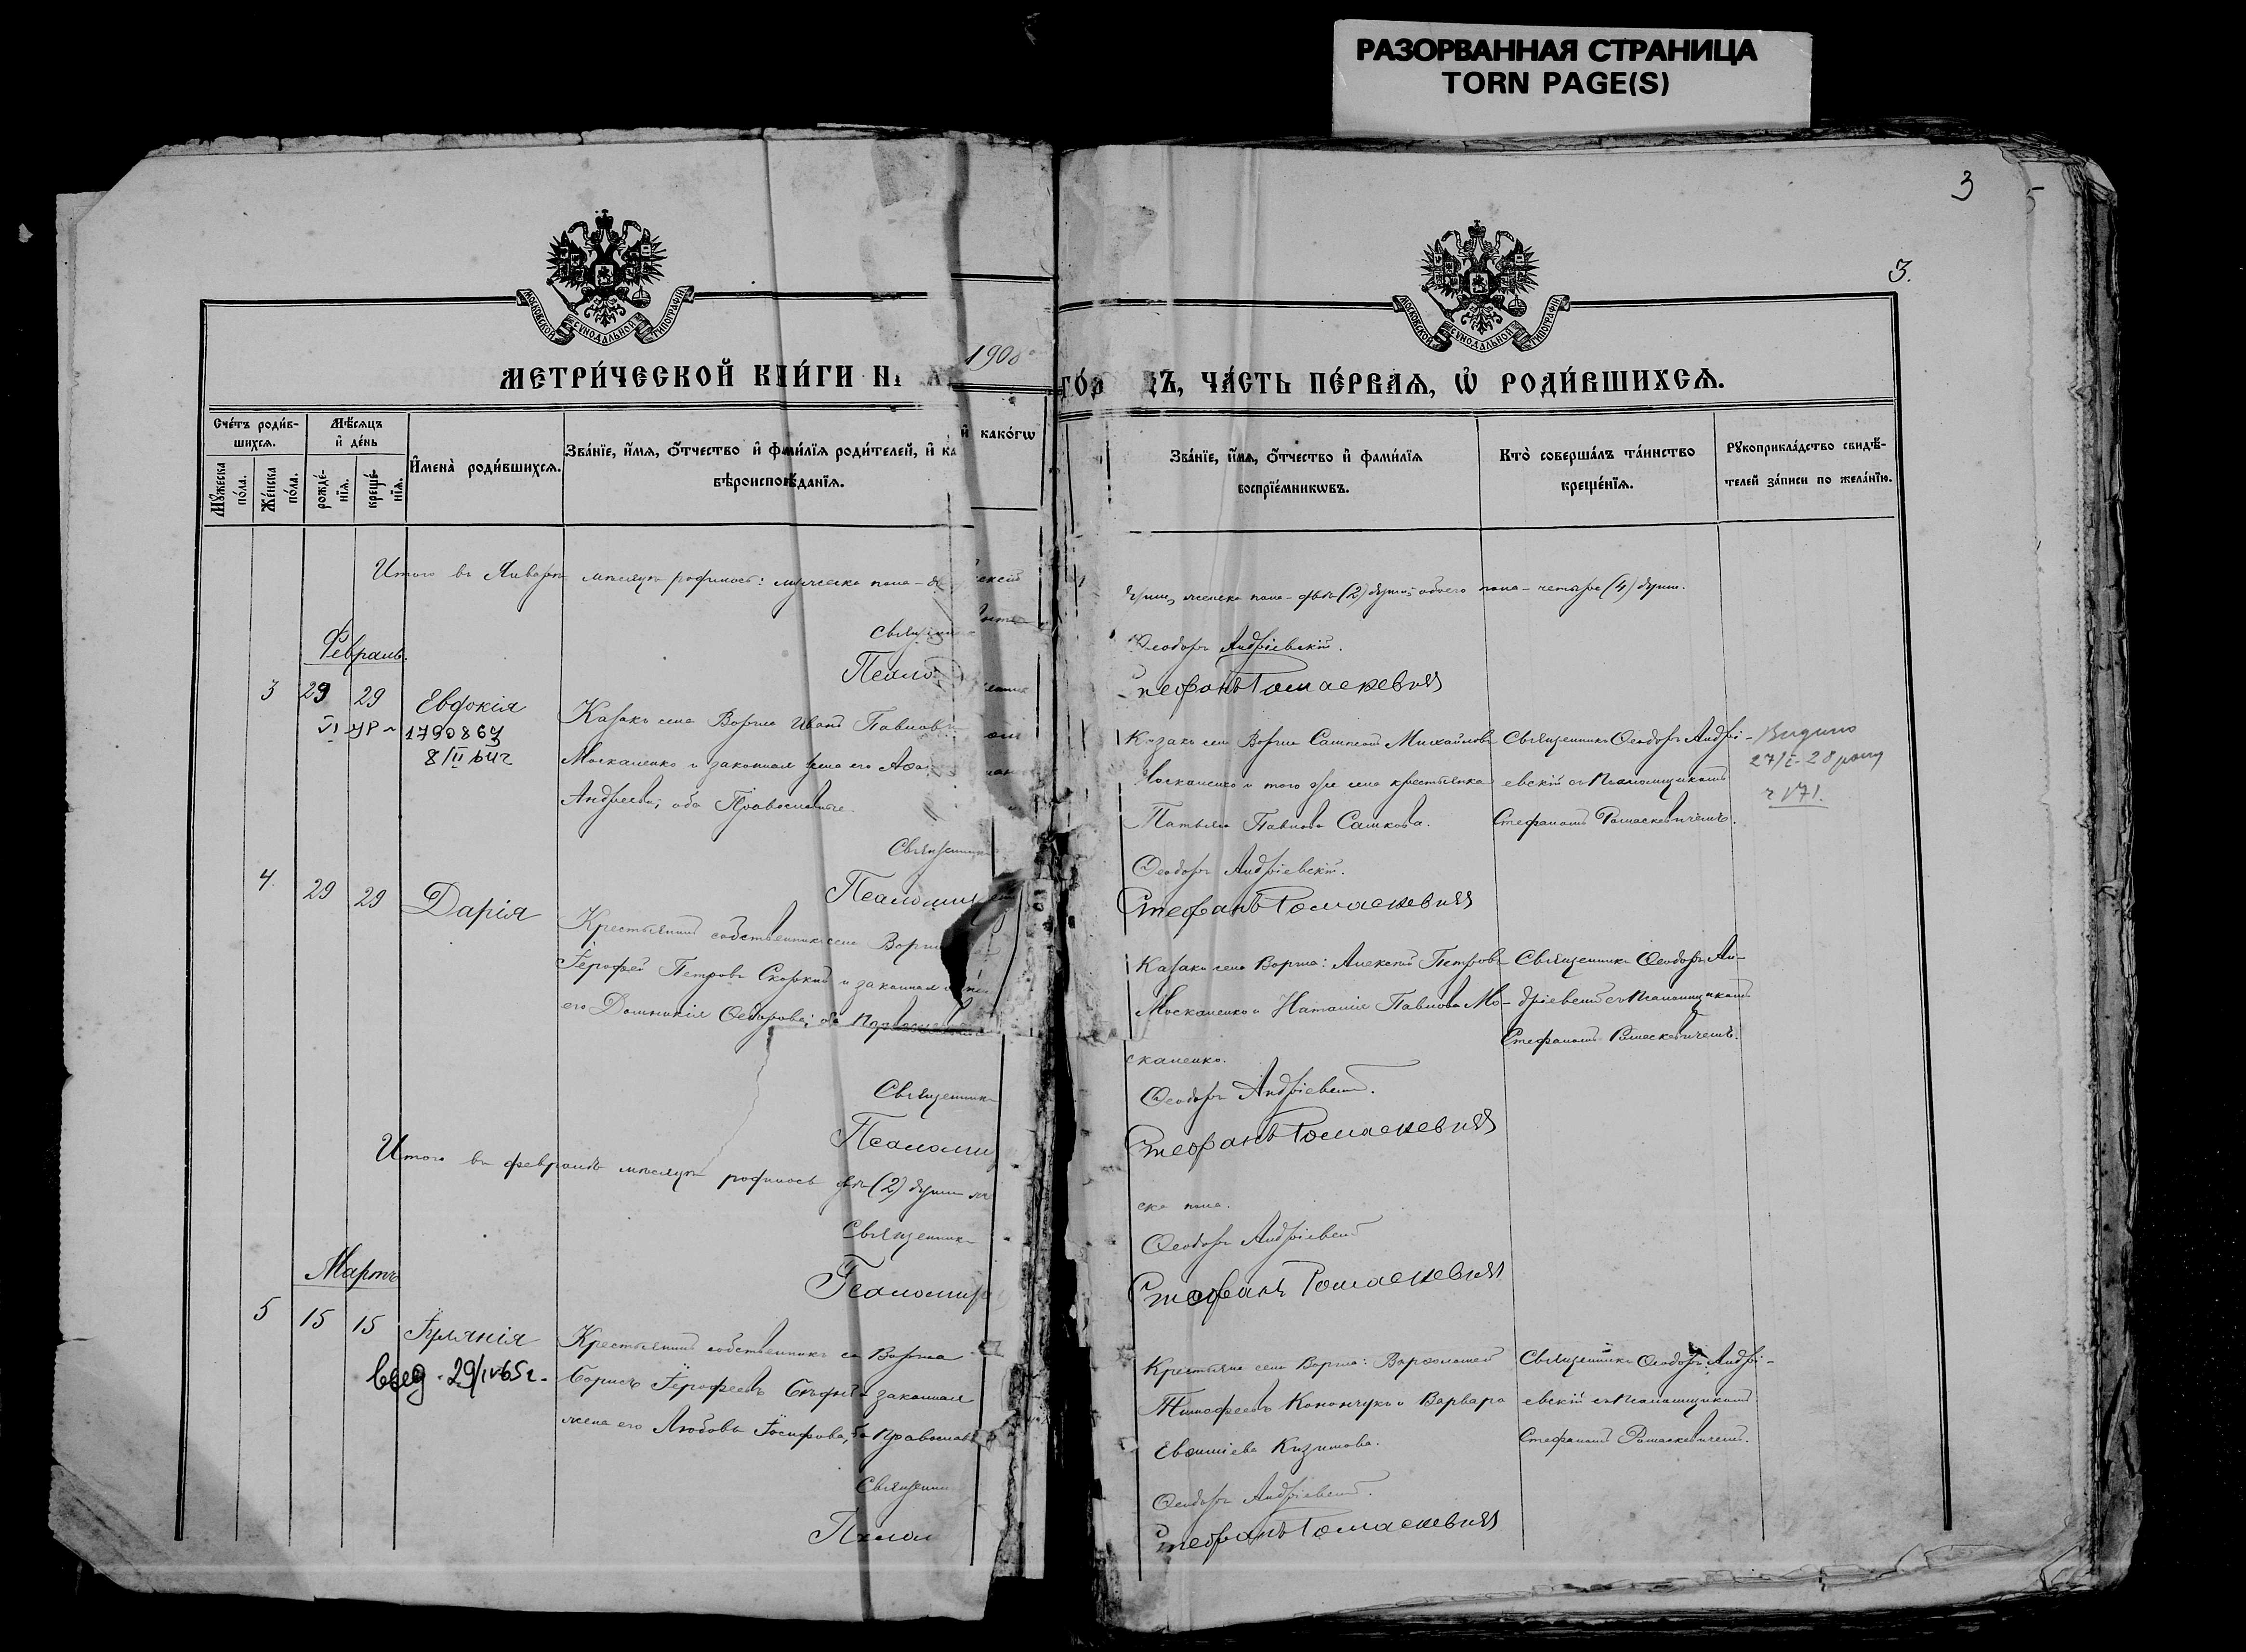 РАЗОРВАННАЯ СТРАНИЦА
TORN PAGE(S)
3
5
3.
МОСКОВСКОЙ СѴНОДАЛЬНОЙ ТИПОГРАФІИ
МОСКОВСКОЙ СѴНОДАЛЬНОЙ ТИПОГРАФІИ
МЕТРИ́ЧЕСКОЙ КНИ́ГИ Н 1908 ГО́Д Ъ, ЧА́СТЬ ПЕ́РВАѦ, Ѡ҆ РОДИ́ВШИХСѦ.
Сче́тъ роди́в-
шихсѧ.
Мꙋ́жеска по́ла.
Же́нска по́ла.
Мѣ́сѧцъ
и҆ де́нь
рожде́-нїѧ.
креще́-нїѧ.
И҆мена̀ роди́вшихсѧ.
Зва́нїе, и҆́мѧ, ѻ҆́тчество и҆ фами́лїѧ роди́телей, и҆ ка
и҆ како́гѡ
вѣроисповѣ́данїѧ.
Зва́нїе, и҆́мѧ, ѻ҆́тчество и҆ фами́лїѧ
воспрїе́мникѡвъ.
Кто̀ соверша́лъ та́инство
креще́нїѧ.
Рꙋкоприкла́дство свидѣ́-
телей за́писи по жела́нїю.
Итого въ Январѣ мѣсяцѣ родилось: мужеска пола -
душ, женска пола - двѣ (2) души; обоего пола - четыре (4) душ.
Священни
Ѳеодоръ Андріевскій.
Псало
Стефанъ Ромаскевичъ
Февраль.
3 29 29 Евдокія
1790867
8/II 64г
Казакъ села Воргла Иванъ Павловъ
Москаленко и законная жена его
Андреева; оба Православные.
Казакъ села Воргла Сампсонъ Михайловъ
Москаленко и того же села крестьянка
Татьяна Павлова Сашкова.
Священникъ Ѳеодоръ Андрі-
евскій съ Псаломщикомъ
Стефаномъ Ромаскевичемъ.
Видано
27/I-28 року
ч 171.
Священникъ
Ѳеодоръ Андріевскій.
Псаломщ
Стефанъ Ромаскевичъ
4. 29 29 Дарія
Крестьянинъ собственникъ села Воргла
Іерофей Петровъ Скорый и законная жена
его Домникія Ѳедорова; оба Православные
Казаки села Воргла: Алексѣй Петровъ
Москаленко и Наталія Павлова Мо-
скаленко.
Священникъ Ѳеодоръ Ан-
дріевскій съ Псаломщикомъ
Стефаномъ Ромаскевичемъ.
Священникъ
Ѳеодоръ Андріевскій.
Псаломщ
Стефанъ Ромаскевичъ
Итого въ февралѣ мѣсяцѣ родилось двѣ (2) души
ска пола.
Священникъ
Ѳеодоръ Андріевскій
Псаломщ
Стефанъ Ромаскевичъ
Мартъ
5 15 15 Іуліанія
29/IV 65г.
Крестьянинъ собственникъ с. Воргла
Борисъ Іерофеевъ законная
жена его Любовь Іосифова, оба Православ
Крестьяне села Воргла: Варѳоломей
Тимофеевъ Конончукъ и Варвара
Евѳимiева Кизимова.
Священникъ Ѳеодоръ Андрі-
евскій съ Псаломщикомъ
Стефаномъ Ромаскевичемъ.
Священни
Ѳеодоръ Андріевскій.
Псалом
Стефанъ Ромаскевичъ